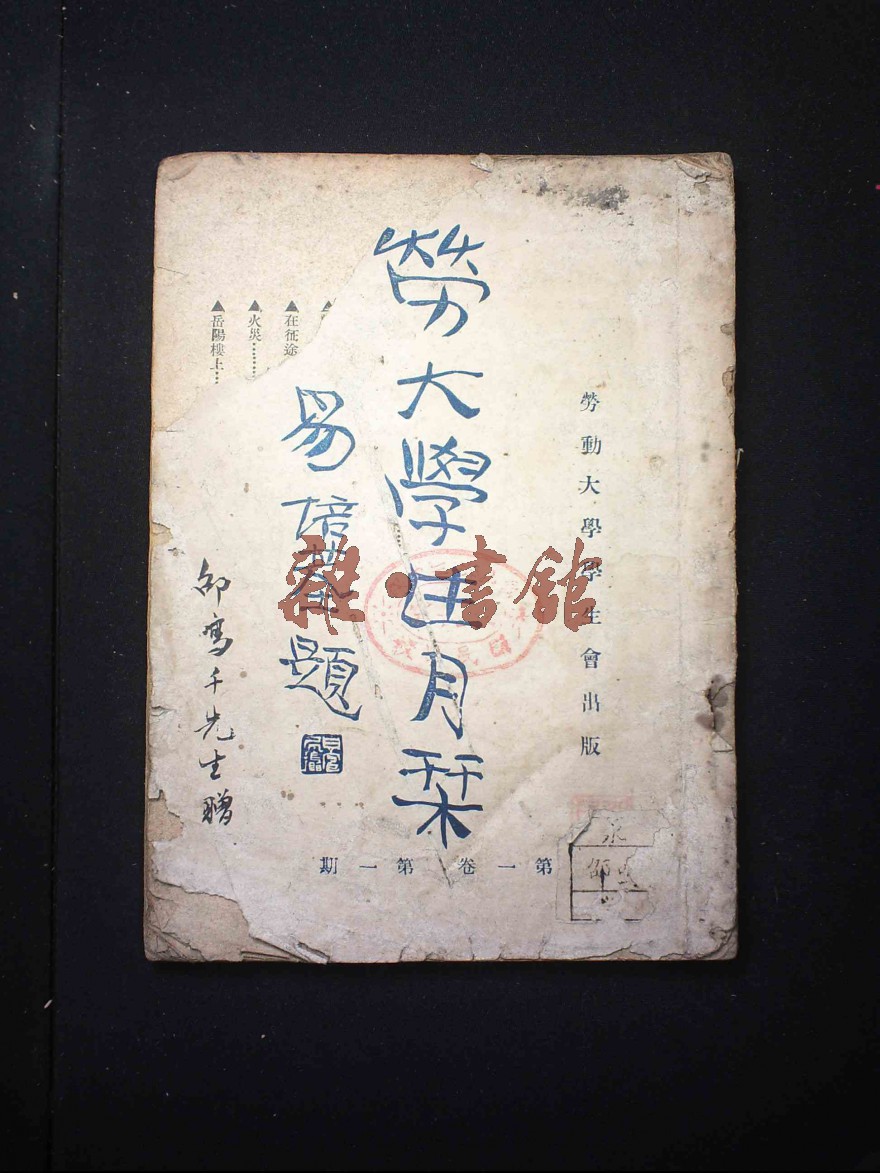 勞動大學學生會出版
勞大學生月栞
易培基題
第一卷 第一期
▲在征途
▲火災………
▲岳陽樓上…
先生贈
雜·書館